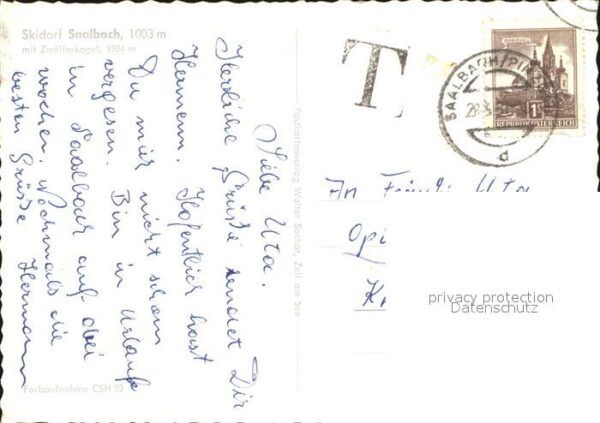 Skidorf Saalbach, 1003 m
mit Zwölferkogel, 1984 m
Liebe Uta.
Herzliche Grüsse sendet Dir
Hermann. Hofentlich hast
Du mir nicht schon
vergessen. Bin in Urlaub
in Saalbach auf drei
wochen. Nochmals die
besten Grüsse Hermann
Farbaufnahme CSH 52
Postkartenverlag Walter Sochor, Zell am See
T
SAALBACH/PINZ
d
REPUBLIK ÖSTERREICH
An Fräul. Uta
Opi
K
privacy protection
Datenschutz